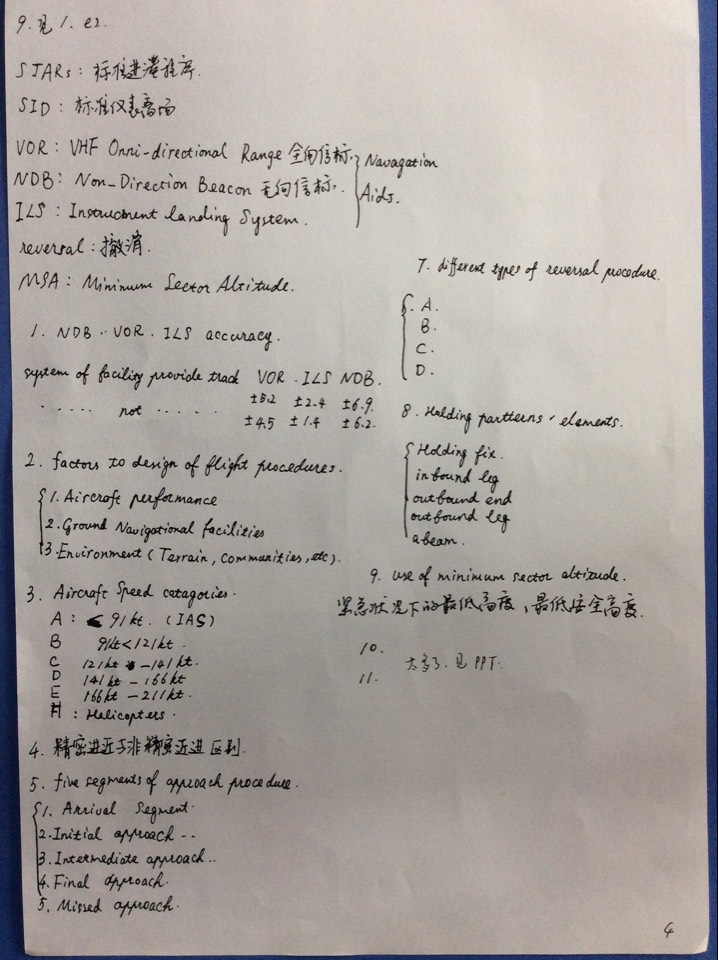 9. 见 1. e2.
STARs: 标准进港程序.
SID: 标准仪表离场
VOR: VHF Onni-directional Range 全向信标.
NDB: Non-Direction Beacon 无向信标.
Navagation
Aids.
ILS: Instrucment landing System.
reversal: 撤消.
MSA: Mininum Sector Altitude.
1. NDB. VOR. ILS accuracy.
system of facility provide track VOR. ILS NDB.
±5.2 ±2.4 ±6.9.
. ..... not ......
±4.5 ±1.4 ±6.2.
2. factors to design of flight procedures.
1. Aircraft performance
2. Ground Navigational facilities
3. Environment (Terrain, communities, etc).
3. Aircraft Speed catagories.
A: < 91kt. (IAS)
B 91kt<121kt.
C 121kt -141kt.
D 141kt - 166kt
E 166kt - 211kt.
H: Helicopters.
4. 精密进近与非精密近进区别.
5. five segments of approach procedure.
1. Arrival segment.
2. Initial approach ..
3. Intermediate approach..
4. Final approach.
5. Missed approach.
7. different types of reversal procedure.
A.
B.
C.
D.
8. Holding partterns. elaments.
Holding fix.
inbound leg
outbound end
outbound leg
abeam.
9. use of minimum sector altitude.
紧急状况下的最低高度, 最低安全高度.
10.
太多了. 见 PPT.
11.
4